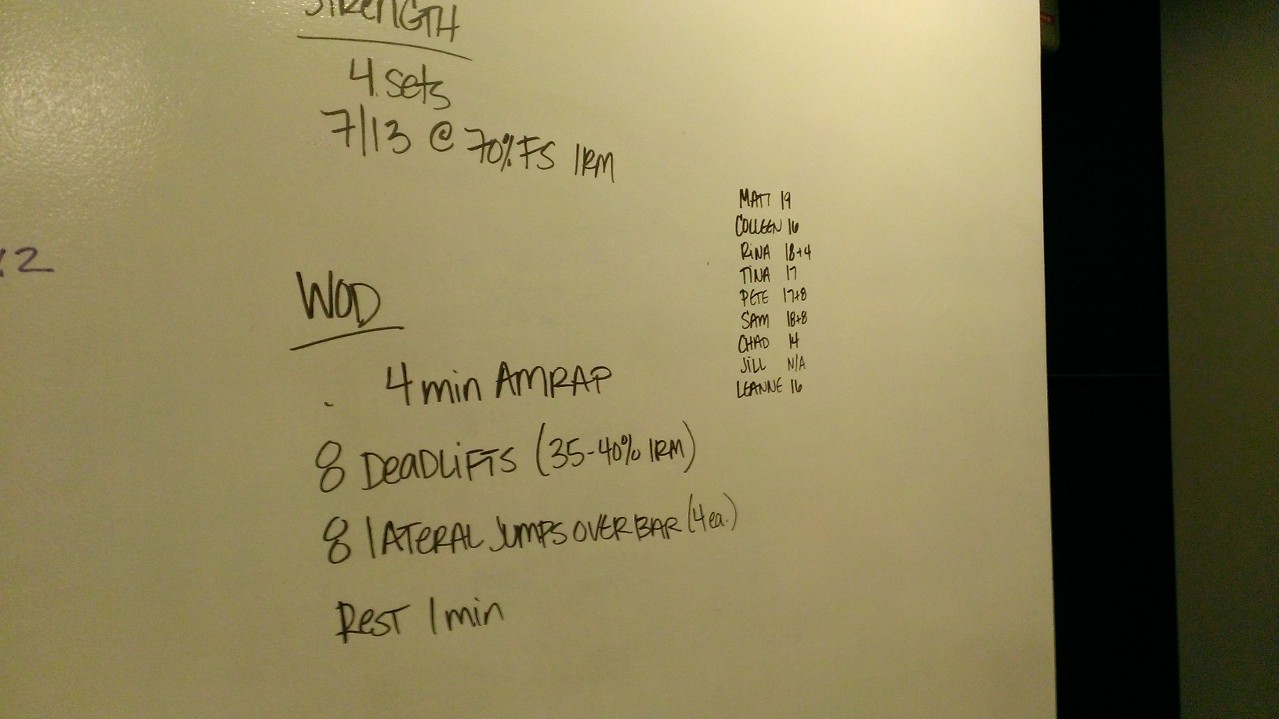 STRENGTH
4 sets
7/13 @ 70% FS 1RM
MATT 19
COLLEEN 16
RINA 18+4
TINA 17
PETE 17+8
SAM 18+8
CHAD 14
JILL N/A
LEANNE 16
WOD
4 min AMRAP
8 DEADLIFTS (35-40% 1RM)
8 LATERAL JUMPS OVER BAR (4 ea.)
REST 1 min